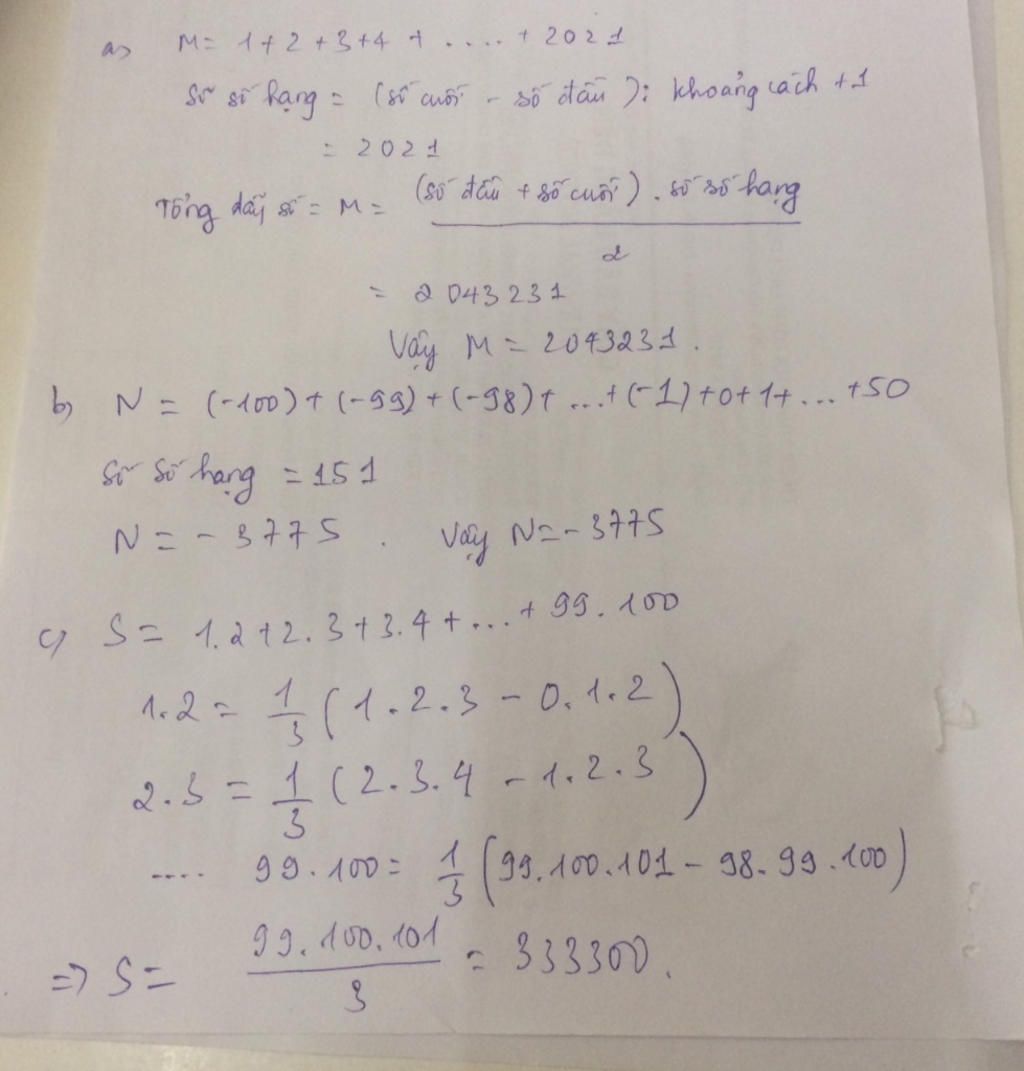 a) M = 1 + 2 + 3 + 4 + ..... + 2021
Số số hạng = (số cuối - số đầu) : khoảng cách + 1
= 2021
Tổng dãy số = M = (số đầu + số cuối) . số số hạng
2
= 2043231
Vậy M = 2043231.
b) N = (-100) + (-99) + (-98) + ... + (-1) + 0 + 1 + ... + 50
Số số hạng = 151
N = - 3775 . Vậy N = - 3775
c) S = 1.2 + 2.3 + 3.4 + ... + 99.100
1.2 = 1/3 (1.2.3 - 0.1.2)
2.3 = 1/3 (2.3.4 - 1.2.3)
.... 99.100 = 1/3 (99.100.101 - 98.99.100)
=> S = 99.100.101 / 3 = 333300.